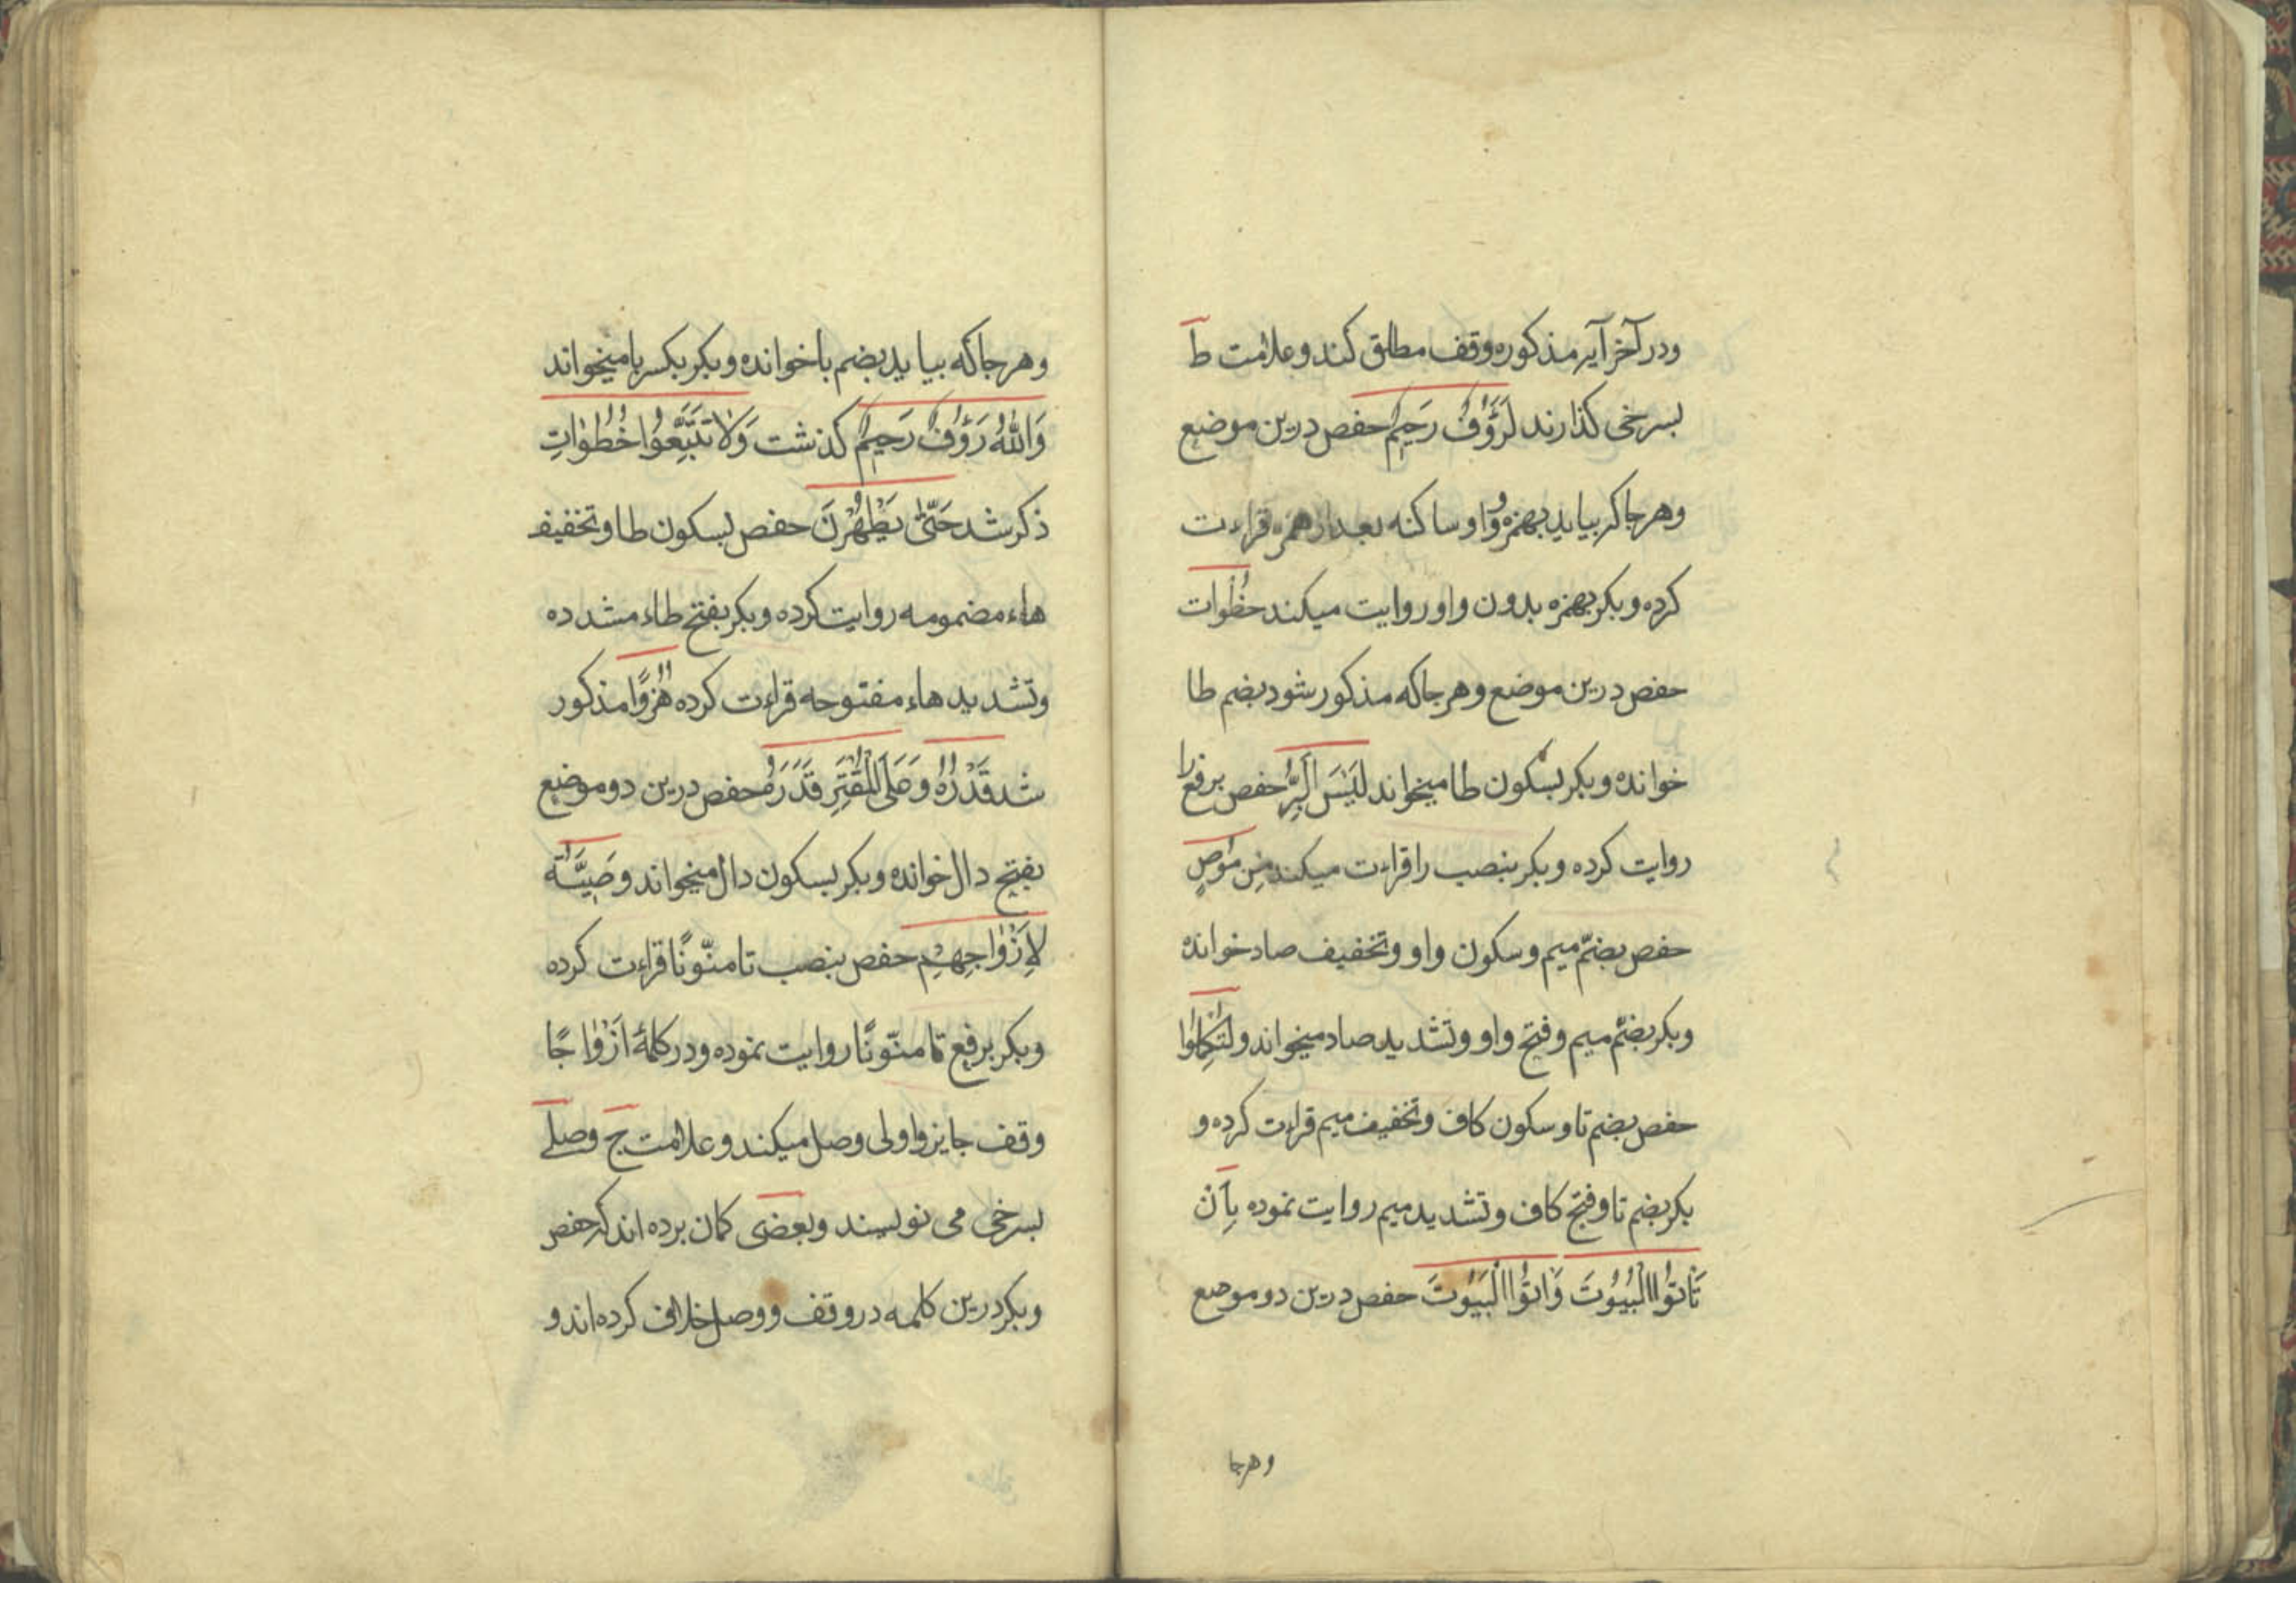 ودر آخر آیه مذکوره وقف مطلق کند وعلامت ط
بسرخی کذارند لَرَؤُفٌ رَحیمٌ حفص درین موضع
وهرجا که بیاید بهمزه وُواو ساکنه بعد از همزه قراءت
کرده وبکر بهمزه بدون واو روایت میکند خُطُوات
حفص درین موضع وهرجا که مذکور شود بضم طا
خوانده وبکر بسکون طا میخواند لَیْسَ الْبِرُّ حفص برفع را
روایت کرده وبکر بنصب را قراءت میکند مِن مُوْصٍ
حفص بضمّ میم وسکون واو وتخفیف صاد خوانده
وبکر بضمّ میم وفتح واو وتشدید صاد میخواند ولِتُکْمِلُوا
حفص بضم تا وسکون کاف وتخفیف میم قراءت کرده و
بکر بضم تا وفتح کاف وتشدید میم روایت نموده بِاَنْ
تَاْتوُا الْبُیُوُتَ وَاتوُا الْبُیوُتَ حفص درین دو موضع
وهرجا
وهرجا که بیاید بضم با خوانده وبکر بکسر با میخواند
وَاللّٰهُ رَؤُفٌ رَحیمٌ کذشت وَلا تَتَّبِعُوا خُطُوٰاتِ
ذکر شد حَتّیٰ یَطْهُرْنَ حفص بسکون طا وتخفیف
هاء مضمومه روایت کرده وبکر بفتح طاء مشدده
وتشدید هاء مفتوحه قراءت کرده هُزُوًا مذکور
شد قَدَرُهُ وَعَلَی الْمُقْتِرِ قَدَرُهُ حفص درین دو موضع
بفتح دال خوانده وبکر بسکون دال میخواند وَصِیَّةً
لِاَزْوٰاجِهِمْ حفص بنصب تا منوّنًا قراءت کرده
وبکر برفع تا منوّنًا روایت نموده ودر کلمهٔ اَزْوٰاجًا
وقف جایز واولی وصل میکند وعلامت ج وصلے
بسرخی می نویسند وبعضی کمان برده اند که حفص
وبکر درین کلمه در وقف ووصل خلاف کرده اند و